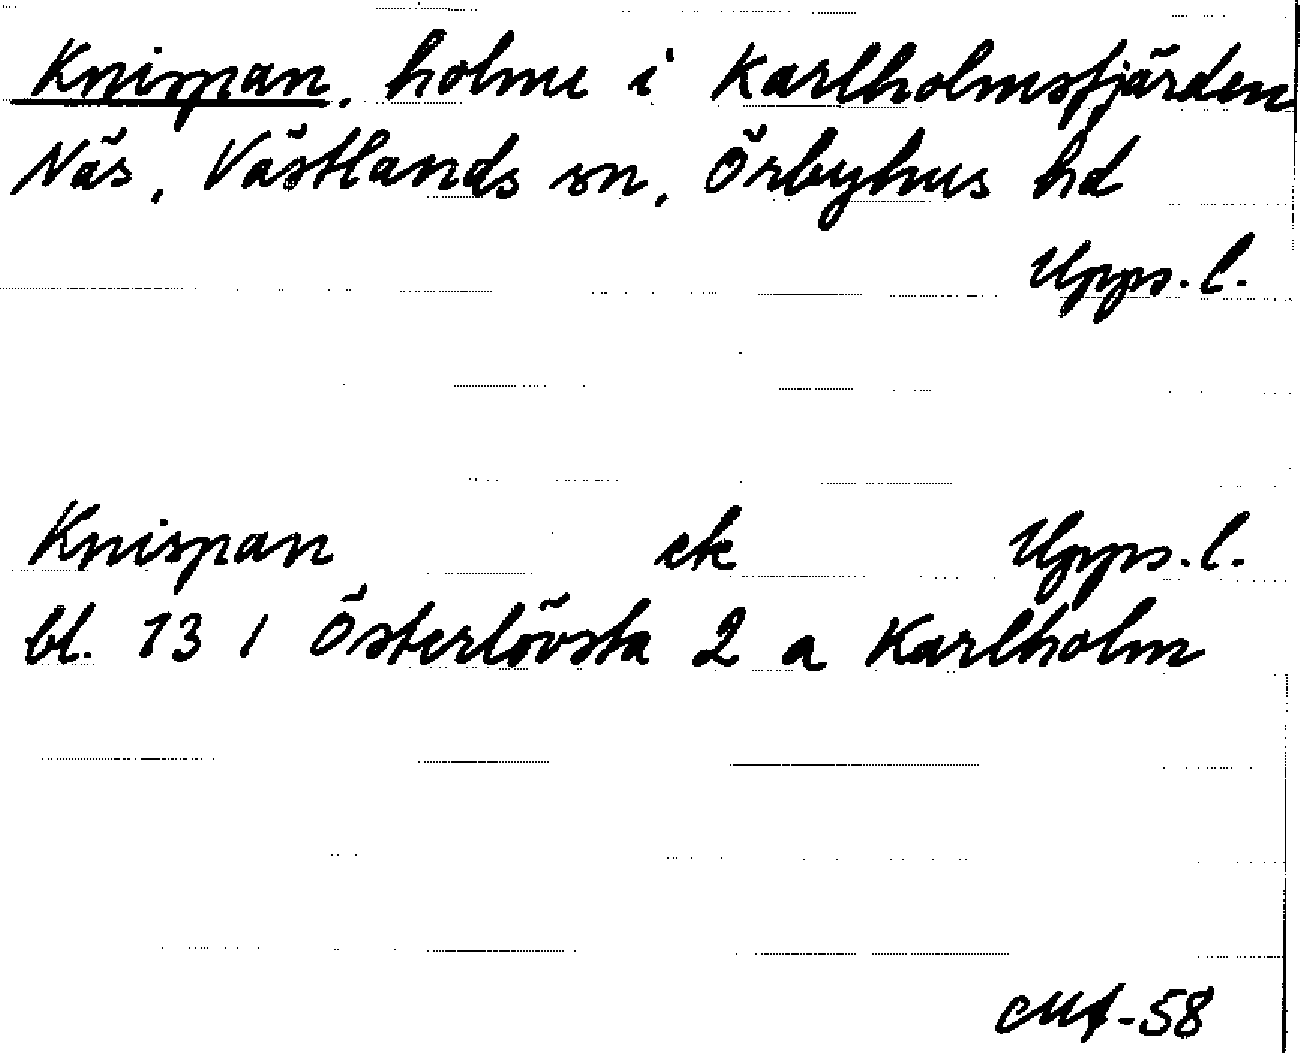 Knispan, holme i Karlholmsfjärden
Näs, Västlands sn, Örbyhus hd
Upps. l.
Knispan ek Upps. l.
bl. 13 I Österlövsta 2 a Karlholm
-58